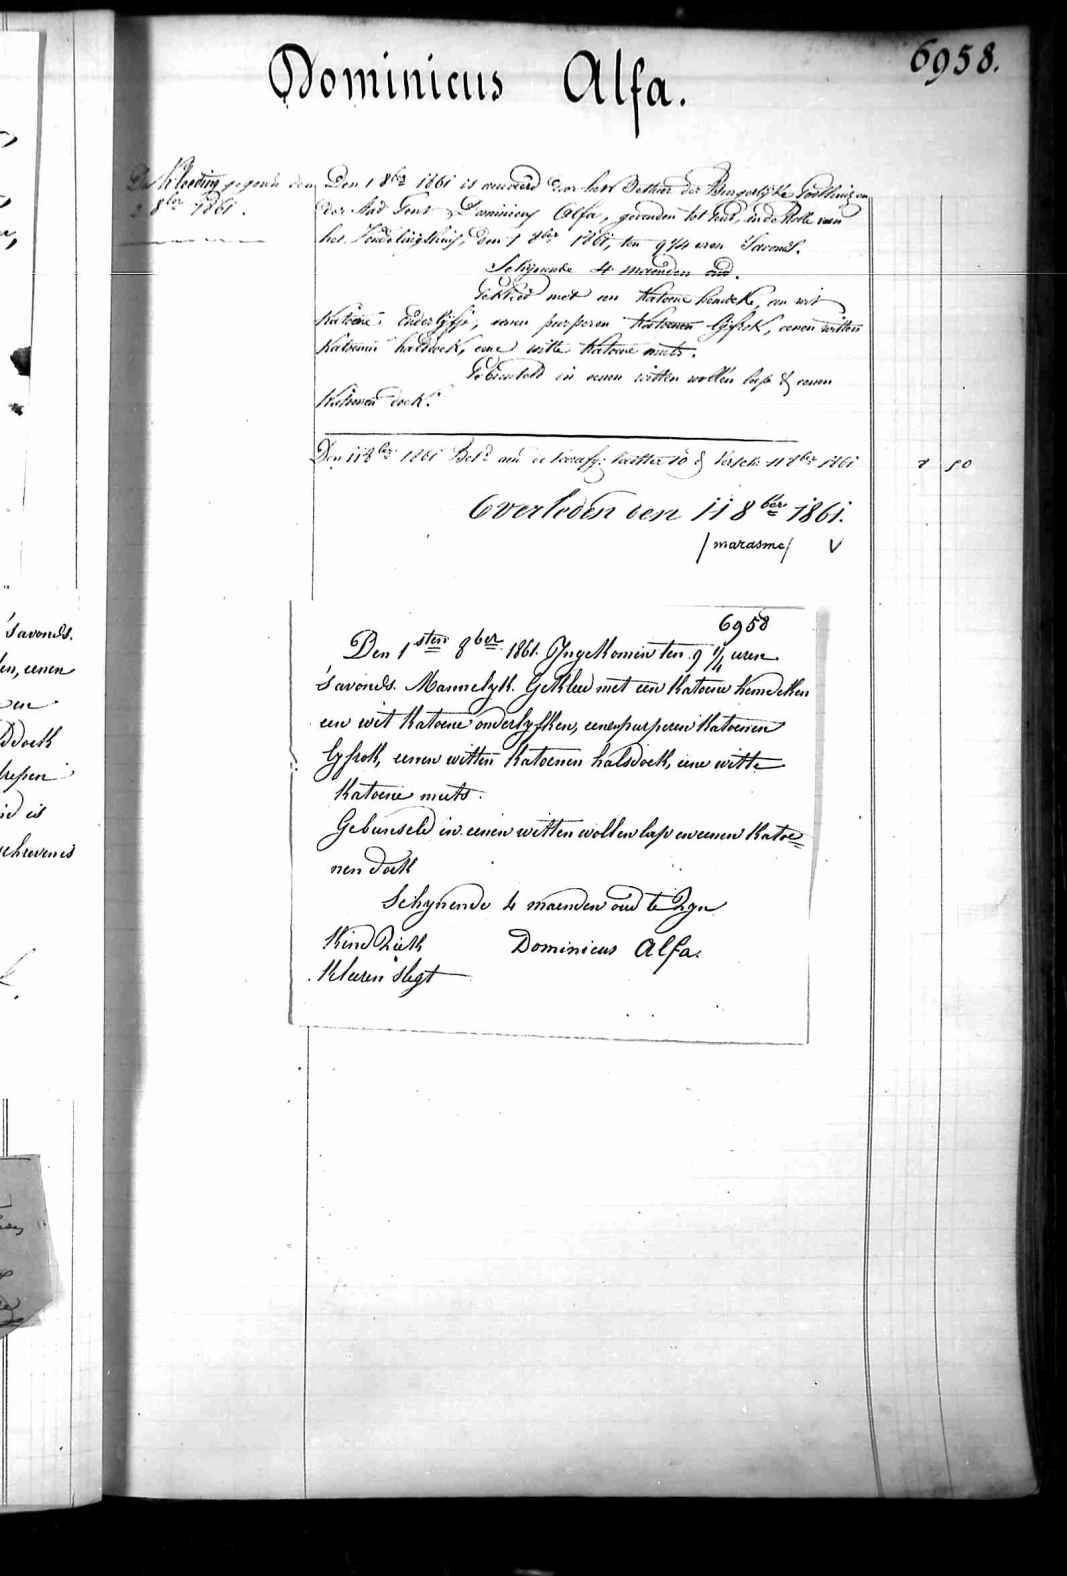 6958.
Dominicus Alfa.
De Kleeding gegeven den
2 8ber 1861.
Den 1 8ber 1861 is aanveerd door het Bestier der Burgerlijke Godshuizen
der Stad Gent Dominicus Alfa, gevonden tot Gent, in de Rolle van
het Vondelinghuis, den 1 8ber 1861, ten 9 1/4 uren Savonds.
Schijnende 4 maenden oud.
Gekleed met een Katoene hemdeke, een wit
Katoene onderlijfje, eenen purperen Katoenen lijfrok, eenen witten
Katoenen halsdoek, eene witte Katoene muts.
Gebunseld in eenen witten wollen lap & eenen
Katoenen doek.
Den 11 8ber 1861 11 8ber 1861
Overleden den 11 8ber 1861.
/marasme/ V
6958
Den 1sten 8ber 1861. Ingekomen ten 9 1/4 uren
s'avonds. Mannelyk. Gekleed met een Katoene hemdeken
een wit Katoene onderlyfken, eenen purperen Katoenen
lyfrok, eenen witten Katoenen halsdoek, eene witte
Katoene muts.
Gebunseld in eenen witten wollen lap en eenen Katoe=
nen doek
Schynende 4 maenden oud te Zyn
Kind Ziek Dominicus Alfa.
Kleeren slegt
s'avonds.
eenen